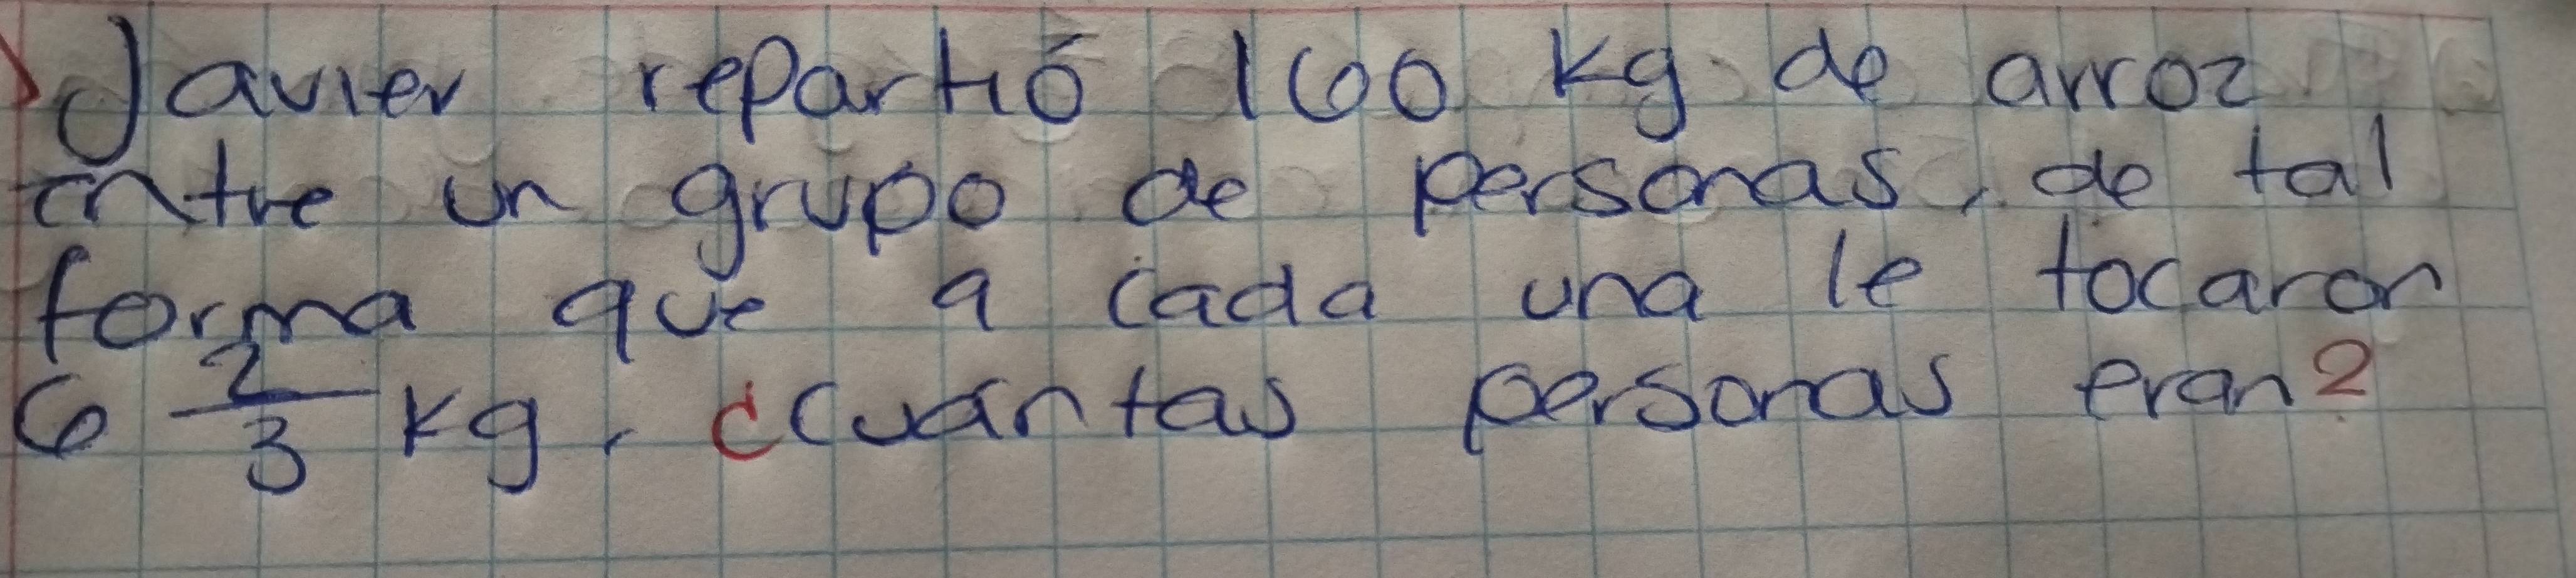 Javier repartió 160 kg de arroz
entre un grupo de personas, de tal
forma que a cada una le tocaron
6 2/3 kg, ¿cuántas personas eran?